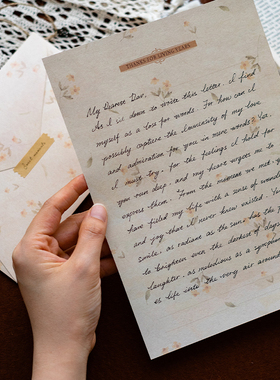 THANKS FOR LOVING TEARS
My Dearest Dar,
As I sit down to write this letter, I find
myself at a loss for words. For how can I
possibly capture the immensity of my love
and admiration for you in mere words? Yet,
I must try, for the feelings I hold for
you run deep, and my heart urges me to
express them. From the moment we met, you
have filled my life with a sense of wonder
and joy that I never knew existed. Your
smile, as radiant as the sun, has the
to brighten even the darkest of days.
laughter, as melodious as a symphony
es life into the very air around